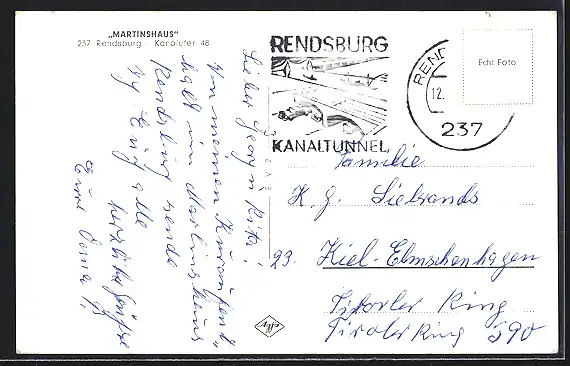 „MARTINSHAUS"
237 Rendsburg - Kanalufer 48
Lieber Georg u Rita!
Von meinem Kuraufent-
halt im Martinshaus
Rendsburg sende
Euch alle
herzliche Grüsse
Eure Oma
RENDSBURG
KANALTUNNEL
REND
12.
237
Echt Foto
Familie
K. G.
23. Kiel-Elmschenhagen
Tiroler Ring
Tiroler Ring 590